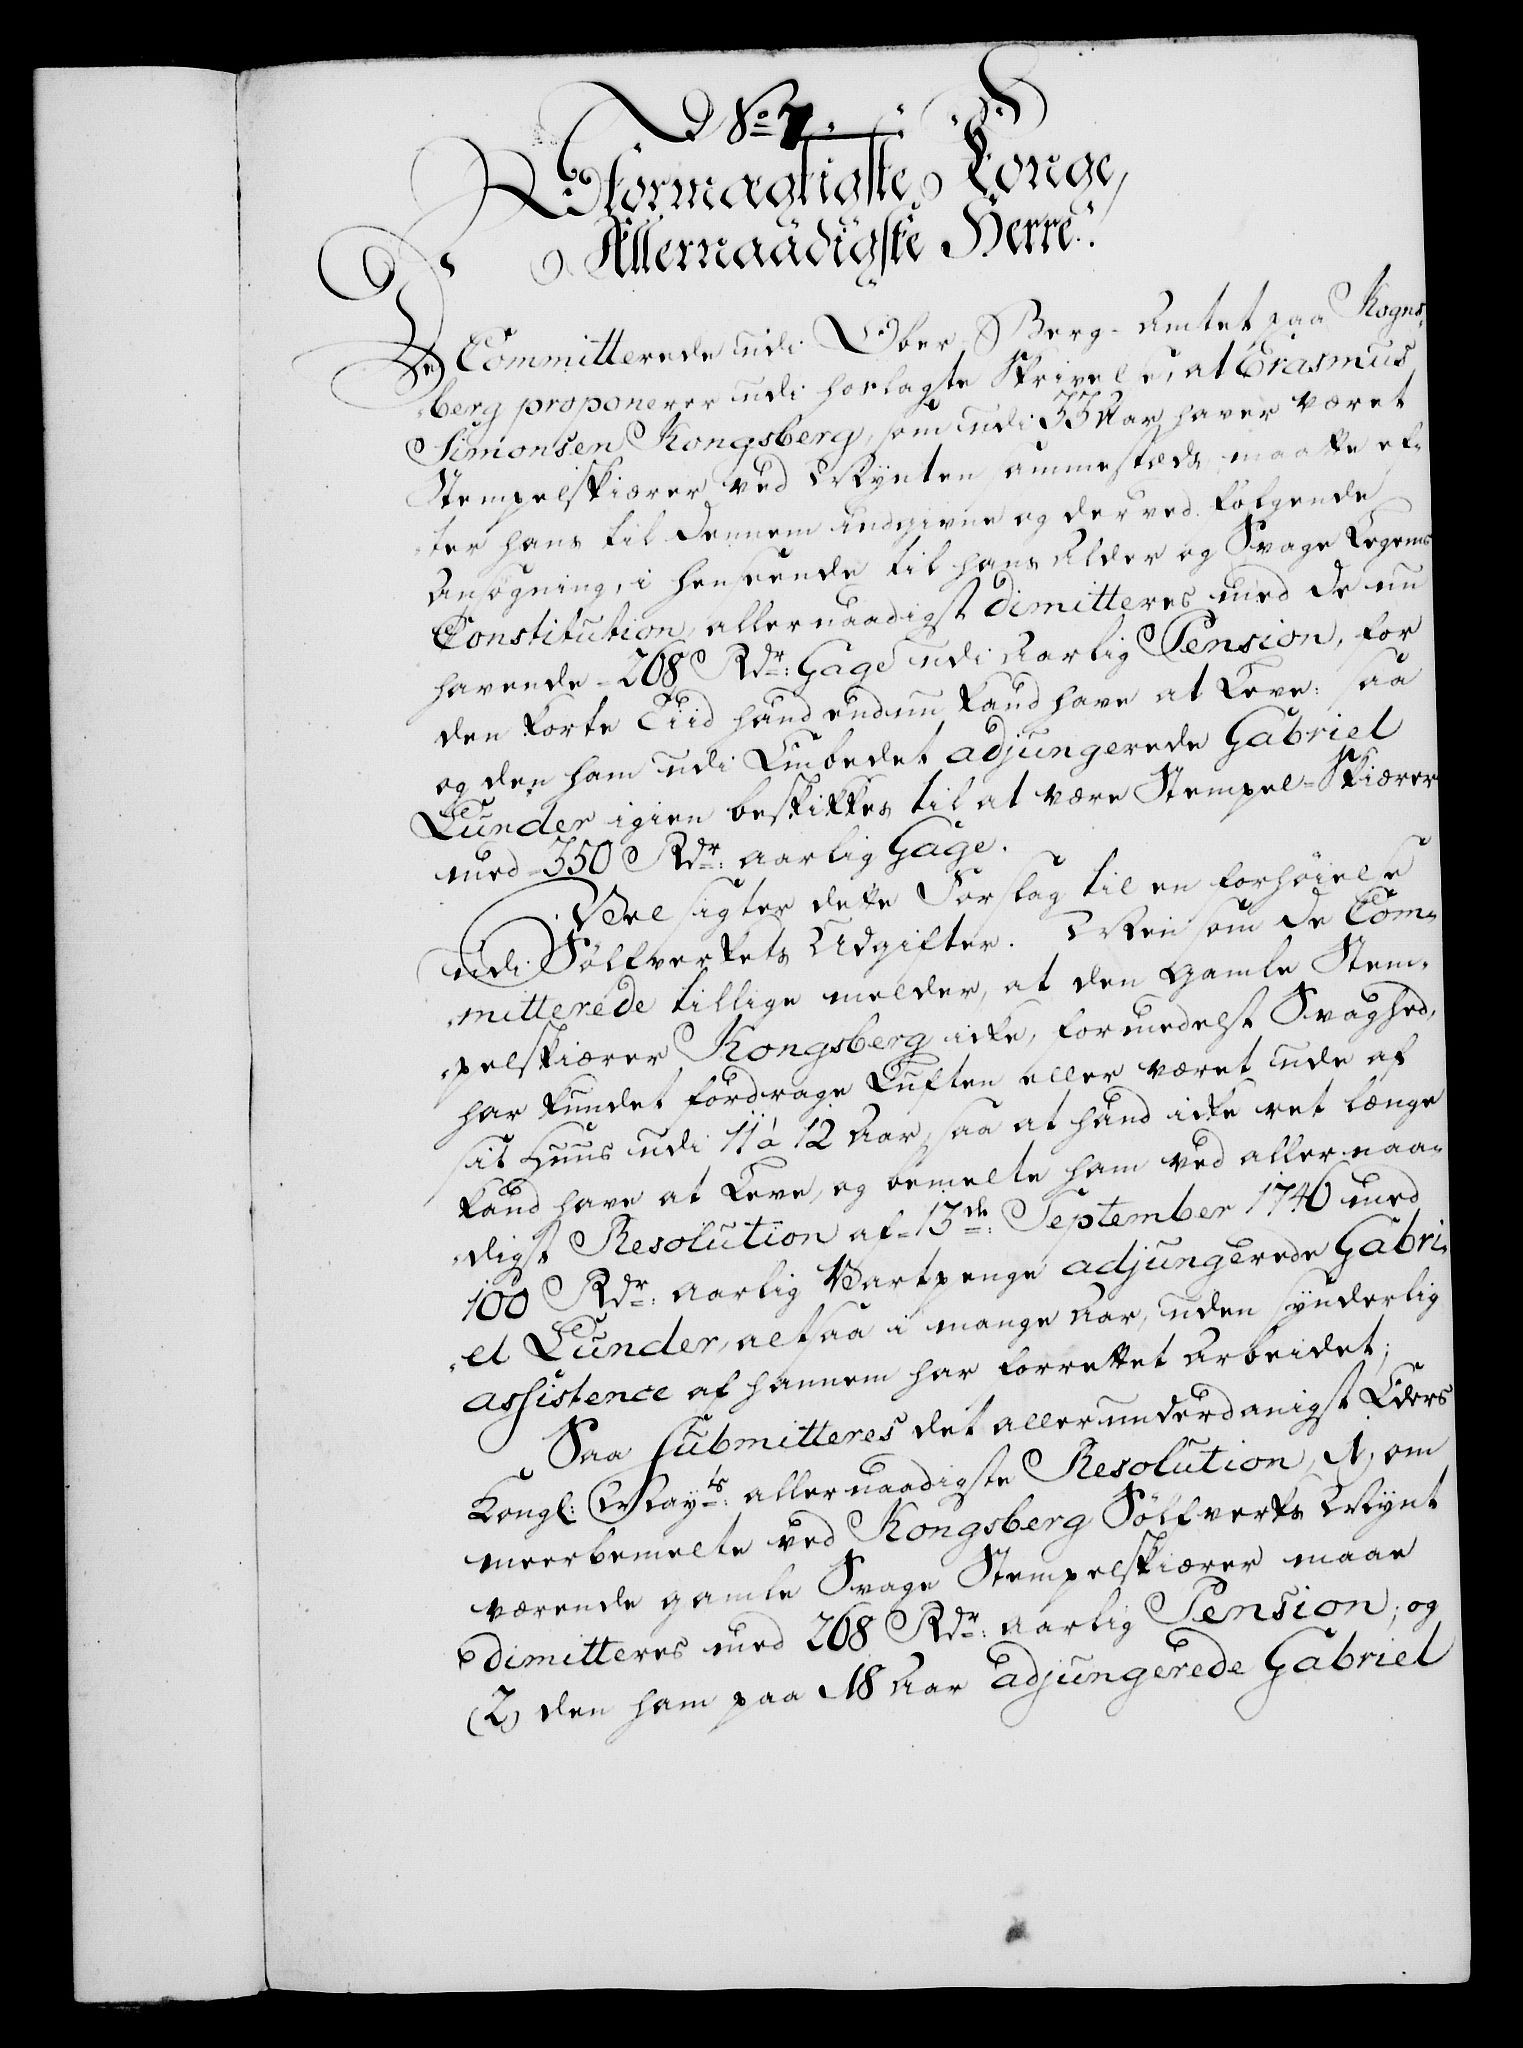 No 7.
Stormægtigste Konge,
Allernaadigste Herre!
De Committerede udi Ober-Berg-Amtet paa Kogns-
berg proponerer udi hoslagte Skrivelse, at Erasmus
Simonsen Kongsberg, som udi 33 Aar haver været
Stempelskiærer ved Mynten sammesteds maatte ef-
ter hans til dennem indgivne og derved følgende
Ansøgning, i henseende til hans Alder og Svage Legems
Constitution, allernaadigst dimitteres med de nu
havende 268 Rdr: Gage udi Aarlig Pension, for
den korte Tiid hand endnu kand have at Leve: saa
og den ham udi Embedet adjungerede Gabriel
Lunder igien beskikkes til at være Stempel-Skiærer
med 350 Rdr: aarlig Gage.
Vel sigter dette Forslag til en forhøielse
udi Sølfverkets Udgifter. Men som de Com-
mitterede tillige melder, at den Gamle Stem-
pelskiærer Kongsberg icke, formedelst Svaghed,
har kundet fordrage Luften eller været ude af
sit Huus udi 11 à 12 Aar, saa at hand icke ret længe
kand have at Leve, og bemelte ham ved allernaa-
digst Resolution af 13de: September 1746 med
100 Rdr: aarlig Vartpenge adjungerede Gabri-
el Lunder, altsaa i mange Aar, uden synderlig
assistence af hannem har forrettet Arbeidet;
Saa submitteres det allerunderdanigst Eders
Kongl: Mayts: allernaadigste Resolution, 1, om
meerbemelte ved Kongsberg Sølfverks Mynt
værende gamle Svage Stempelskiærer maae
dimitteres med 268 Rdr: aarlig Pension; og
(2) den ham paa 18 Aar adjungerede Gabriel